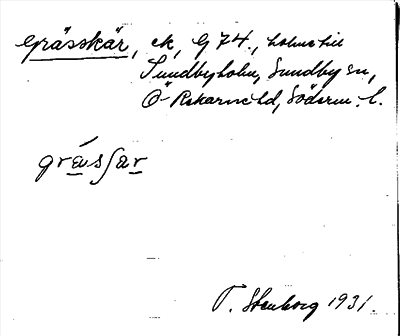 Grässkär, ek, G 74., holme till
Sundbyholm, Sundby sn,
Ö Rekarne hd, Söderm. l.
græ̀sʃar
T. Stenborg 1931.